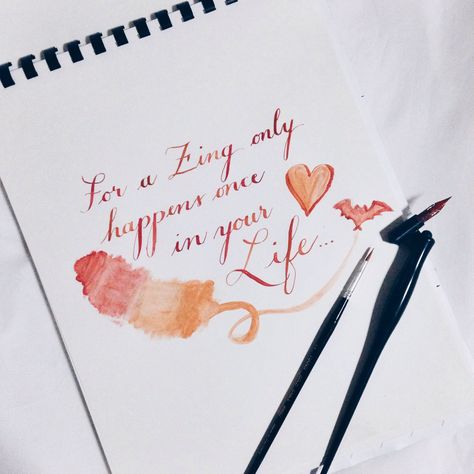 For a Zing only
happens once
in your
Life...